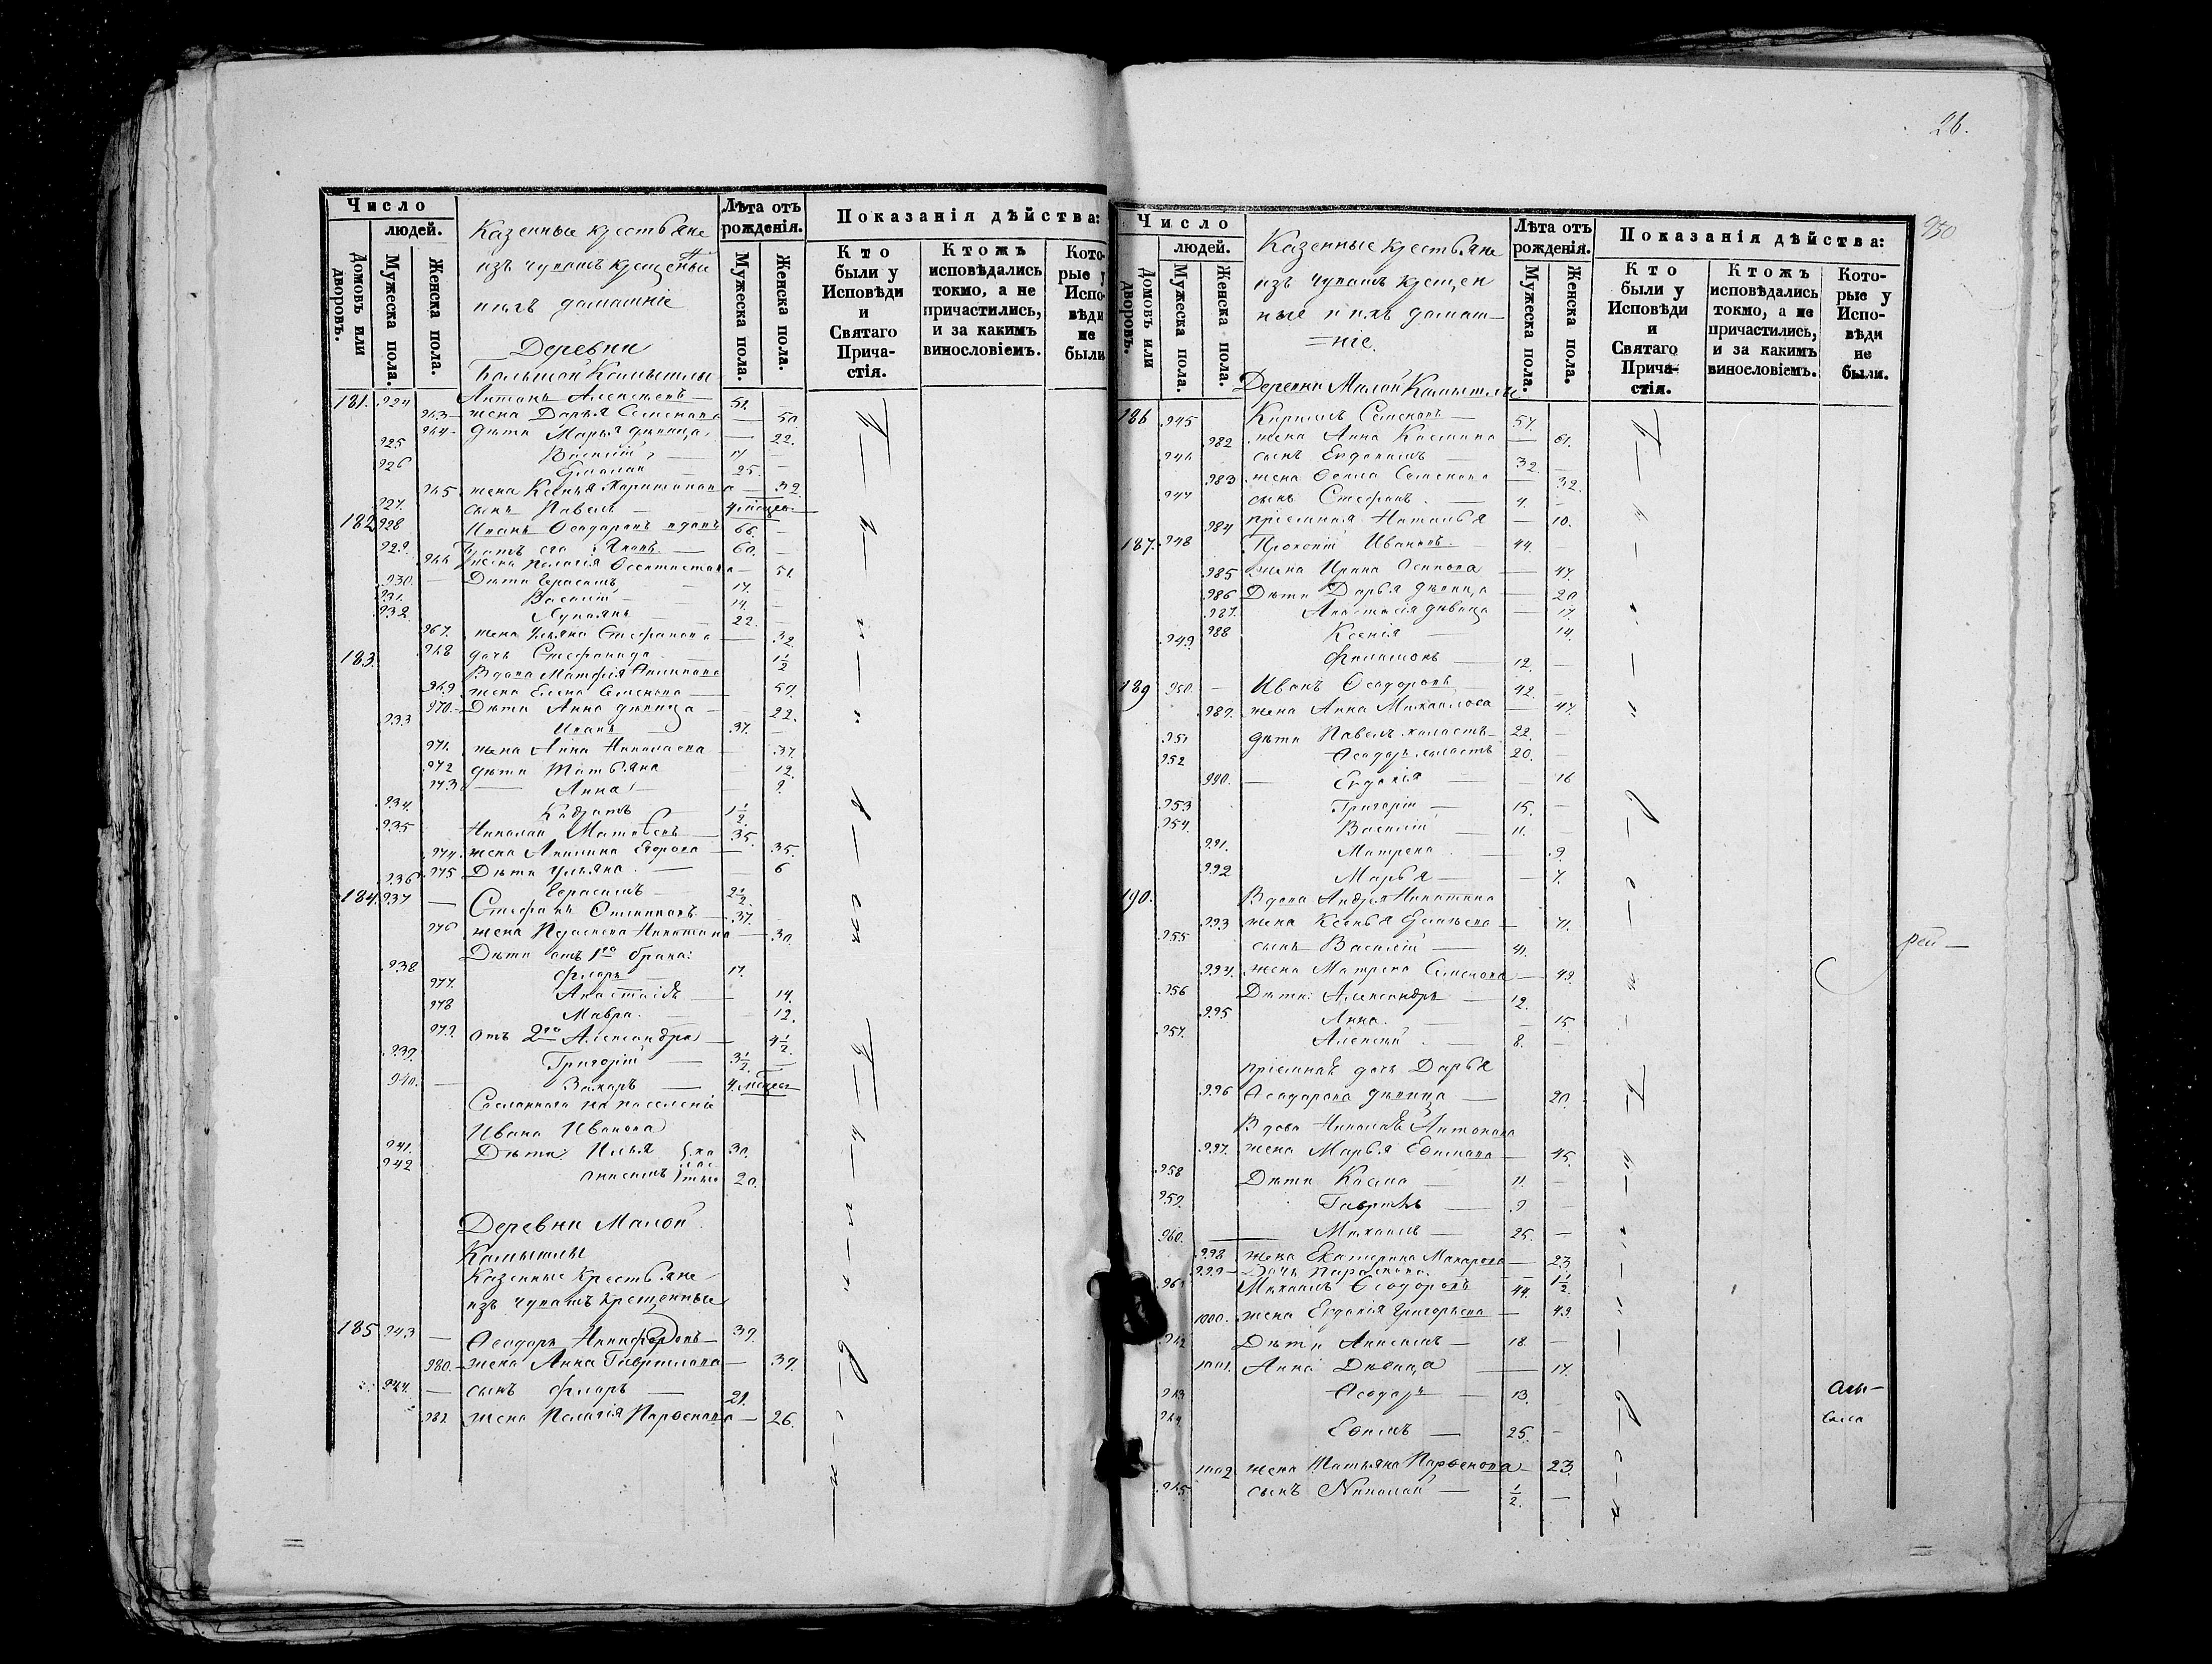 Число
людей.
Домовъ или дворовъ.
Мужеска пола.
Женска пола.
Казенные крестьяне
изъ чувашъ крещенные
ихъ домашніе
Деревни
Большой Камышлы
Лѣта отъ рожденія.
Мужеска пола.
Женска пола.
Показанія дѣйства:
Кто были у Исповѣди и Святаго Причастія.
Ктожъ исповѣдались токмо, а не причастились, и за какимъ винословіемъ.
Которые у Исповѣди не были
181. 924 Антонъ Алексѣевъ — 51.
963 — жена Дарья Семенова — 50.
964 — дѣти Марья дѣвица — 22.
925 Василій — 17
926 Ермолай — 25.
965. жена Ксенья Харитонова — 32.
927. сынъ Павелъ — 4 мѣсяц.
182. 928 Иванъ Ѳеодоровъ вдовъ 66.
929. братъ его Яковъ — 60.
966 жена Пелагія — 51.
930. — Дѣти Герасимъ — 17.
931. Василій — 14.
932. Лукоянъ — 22.
967. жена Ульяна Стефанова — 32.
968 дочь Стефанида — 1½
183. Вдова Матфея
969 жена Елена Семенова — 57.
970. — Дѣти Анна дѣвица — 22.
933 Иванъ — 37.
971. жена Анна Николаева — 37.
972 дѣти Татьяна — 12.
973 — Анна — 9.
934. 1½.
935. Николай Матвѣевъ — 35.
974. жена Акилина Егорова — 35.
975 Дѣти Ульяна — 6
936 Герасимъ — 2½.
184. 937 — Стефанъ — 37.
976 жена Никитина — 30.
Дѣти отъ 1го брака:
938 Флоръ — 17.
977. Анастасія — 14.
978 Мавра — 12.
979. отъ 2го Александра — 4½.
939. Григорій — 3½.
940. — Захаръ — 4 мѣсяц.
Сосланнаго на поселеніе
Ивана Иванова
941. Дѣти Илья холостые 30.
942 Анисимъ 20.
Деревни Малой
Камышлы
Казенные Крестьяне
изъ чувашъ крещенные
185 943 — Ѳеодоръ Никифоровъ — 39.
980. — жена Анна Гаврилова — 39.
944. — сынъ Флоръ — 21.
981 жена Пелагія Парѳенова — 26.
26.
950
Число
людей.
Домовъ или дворовъ.
Мужеска пола.
Женска пола.
Казенные крестьяне
изъ чувашъ крещен
ные и ихъ домаш-
=ніе.
Деревни Малой Камышлы
Лѣта отъ рожденія.
Мужеска пола.
Женска пола.
Показанія дѣйства:
Кто были у Исповѣди и Святаго Причастія.
Ктожъ исповѣдались токмо, а не причастились, и за какимъ винословіемъ.
Которые у Исповѣди не были.
186 945 Кирилъ Семеновъ — 57.
982 жена Анна Козмина — 61.
946 сынъ Евдокимъ — 32.
983 жена Ѳекла Семенова — 32.
947 сынъ Стефанъ — 4.
984 пріемная Наталья — 10.
187. 948 Прокопій Ивановъ — 44.
985 жена Ирина Осипова — 47.
986 Дѣти Дарья дѣвица — 20
987. Анастасія дѣвица — 17.
988 Ксенія — 14.
949. Филимонъ — 12.
189 950. — Иванъ Ѳеодоровъ — 42.
989. жена Анна Михайлова — 47.
951 дѣти Павелъ холостъ — 22.
952 Ѳеодоръ холостъ 20.
990. — Евдокія — 16
953 Григорій — 15.
954. Василій — 11.
991. Матрена — 9.
992 Марья — 7.
190. Вдова Андрея Никитина
993 жена Ксенья — 71.
955 сынъ Василій — 41.
994. жена Матрена Семенова — 49.
956 Дѣти: Александръ — 12.
995 Анна — 15.
957. Алексѣй — 8.
пріемная дочь Дарья
996 Ѳеодорова дѣвица — 20.
Вдова Николая Антонова
997. жена Марья Ефимова — 45.
958 Дѣти Козма — 11.
959. Гаврилъ — 9
960. — Михаилъ — 25.
998 жена Екатерина Макарова — 23
999 — дочь — 1½.
961 Михаилъ Ѳеодоровъ 44.
1000. жена Евдокія Григорьева — 49.
962 Дѣти Анисимъ — 18.
1001. Анна Дѣвица — 17.
963 Ѳеодоръ — 13.
964 Ефимъ — 25.
1002 жена Татьяна Парѳенова — 23.
965. сынъ Николай — ½.